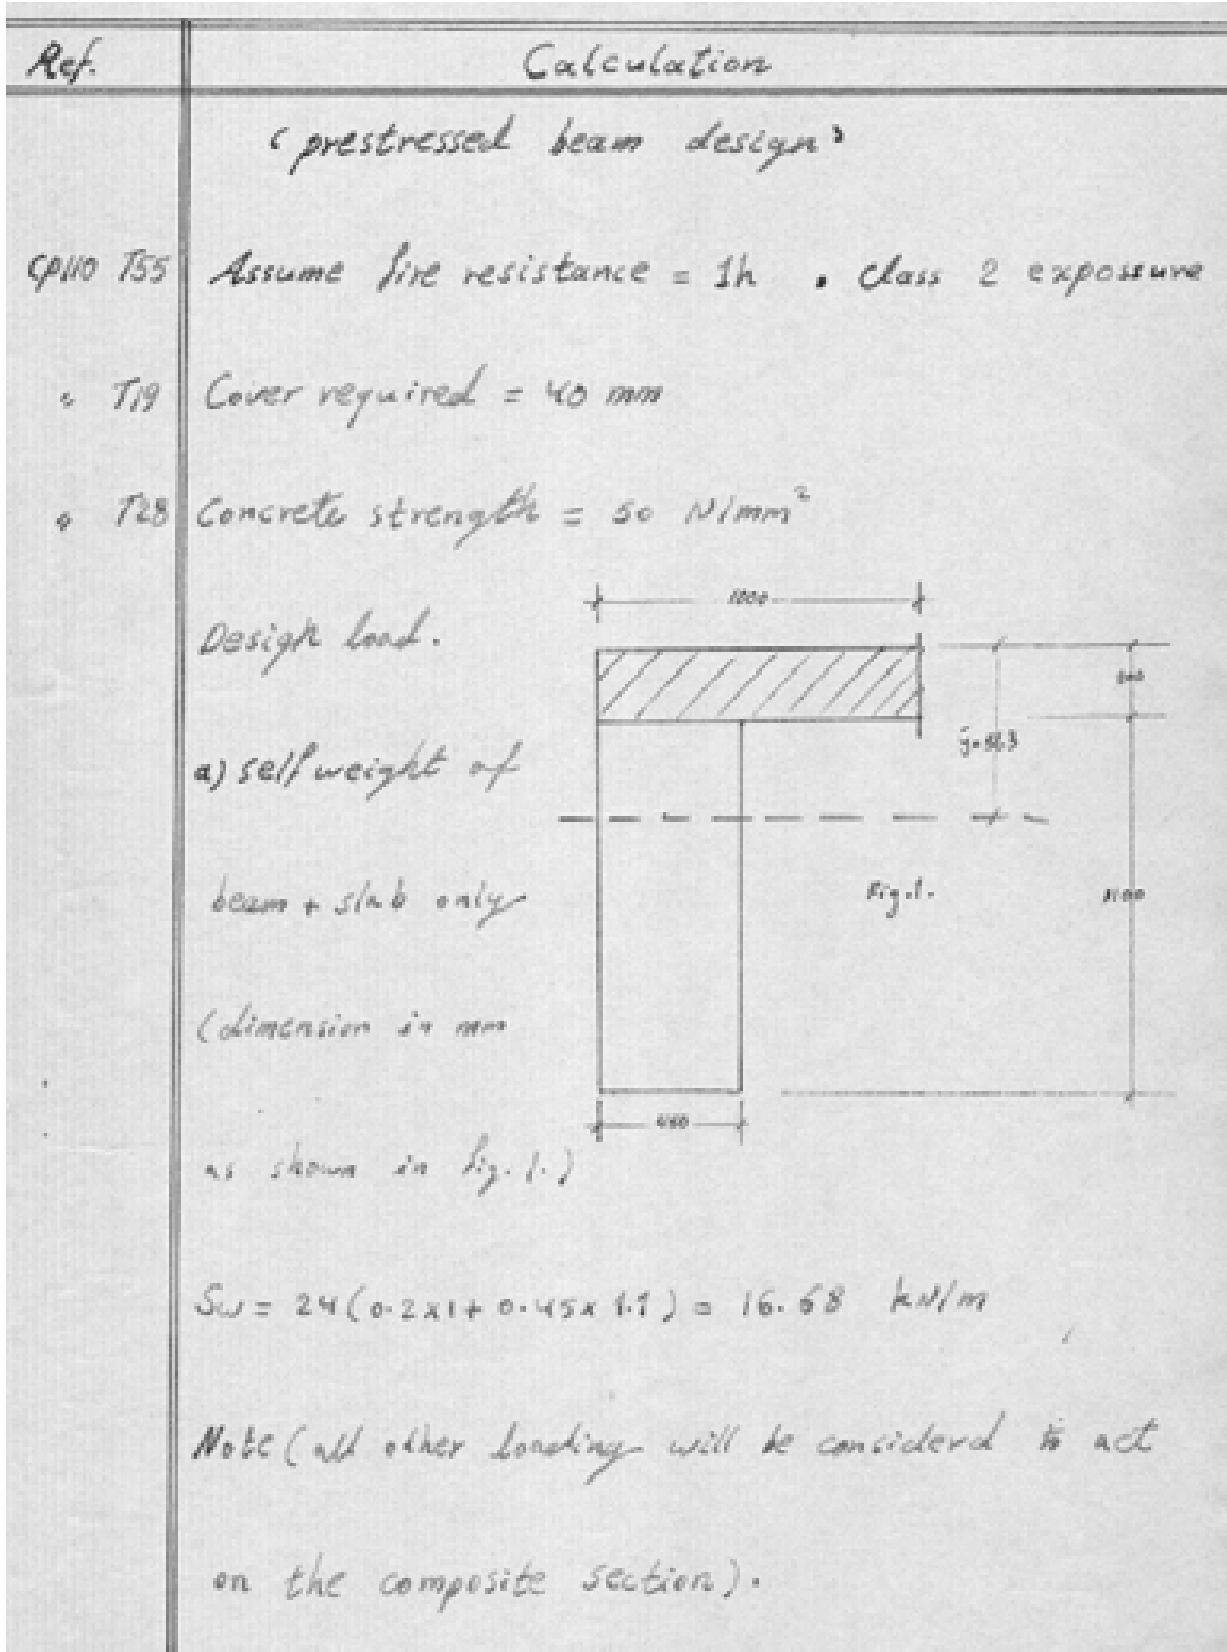 Ref. Calculation
(prestressed beam design)
CP110 T55 Assume fire resistance = 1h . Class 2 expossure
" T19 Cover required = 40 mm
" T28 Concrete strength = 50 N/mm²
1000
Design load.
200
a) self weight of
beam + slab only
Fig.1.
1100
(dimension in mm
450
as shown in fig. 1.)
Sw = 24(0.2x1+ 0.45x 1.1) = 16.68 kN/m
Note (all other loading will be considerd to act
on the composite section).